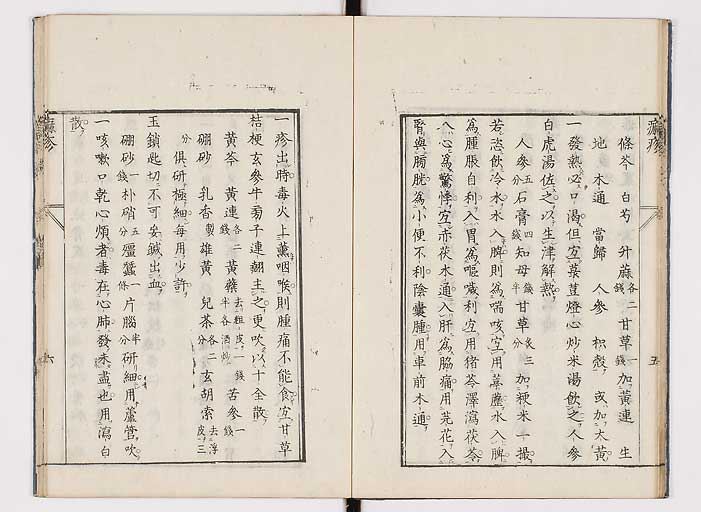 條芩 白芍 升蔴各二錢 甘草一錢 加黃連 生
地 木通 當歸 人參 枳殼 或加大黃
一發熱必口渴但宜葉莖燈心炒米湯飲之人參
白虎湯佐之以生津解熱
人參五分 石膏四錢 知母錢半 甘草炙三分 加粳米一撮
若恣飲冷水水入脾則為喘咳宜用葶藶水入脾
為腫脹自利入胃為嘔噦利宜用猪苓澤瀉茯苓
入心為驚悸宜赤茯木通入肝為脇痛用芫花入
腎與膀胱為小便不利陰囊腫用車前木通
一疹出時毒火上薰咽喉則腫痛不能食宜甘草
桔梗玄參牛蒡子連翹主之更吹以十全散
黃芩 黃連各二錢 黃蘗去粗皮一錢半各酒炒 苦參一錢
硼砂 乳香製 雄黃 兒茶各二分 玄胡索去浮皮三分
俱研極細每用少許
玉鎖匙切不可妄鍼出血
硼砂一錢 朴硝五分 殭蠶一條 片腦半分 研細用蘆管吹
一咳嗽口乾心煩者毒在心肺發未盡也用瀉白
散
痲疹
五
痲疹
六